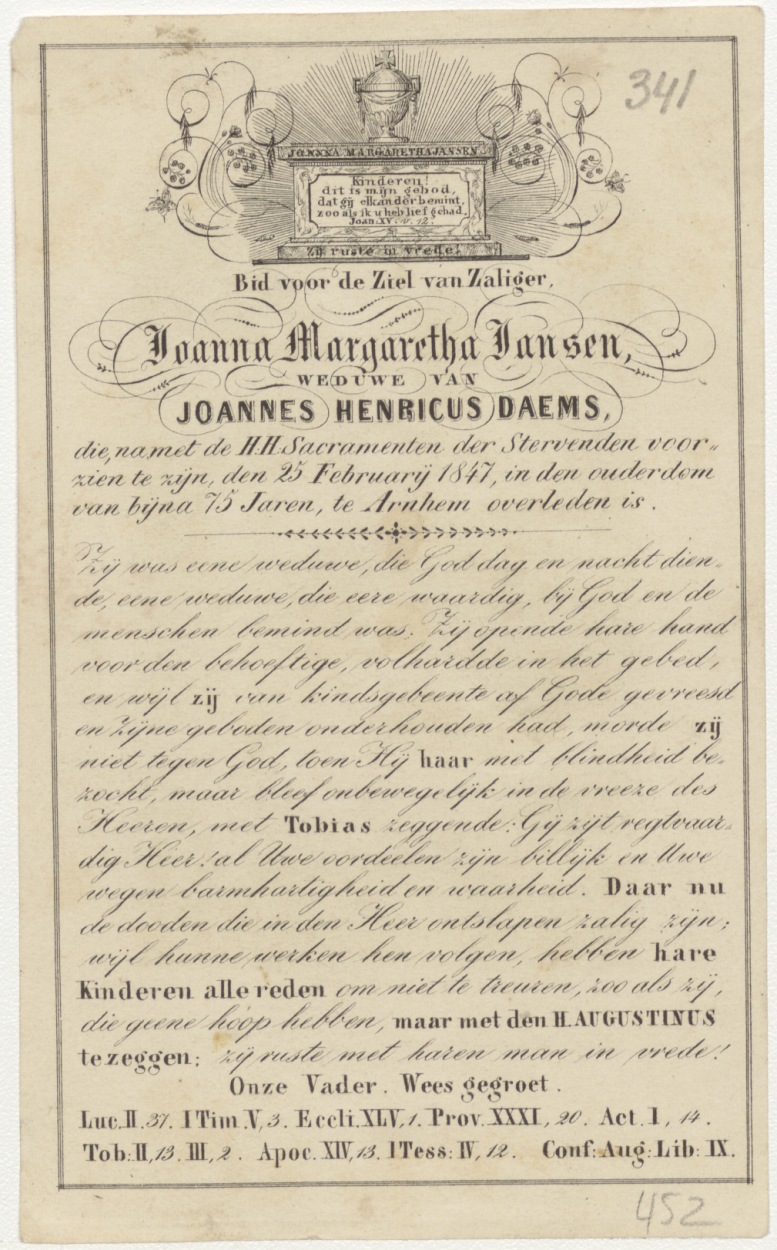 341
JOANNA MARGARETHA JANSEN
Kinderen!
dit is mijn gebod,
dat gij elkander bemint,
zoo als ik u heb lief gehad.
Joan: XV. v. 12.
Zij ruste in vrede!
Bid voor de Ziel van Zaliger,
Joanna Margaretha Jansen,
WEDUWE VAN
JOANNES HENRICUS DAEMS,
die, na met de H.H. Sacramenten der Stervenden voor-
zien te zijn, den 25 Februarij 1847, in den ouderdom
van bijna 75 Jaren, te Arnhem overleden is.
Zij was eene weduwe, die God dag en nacht dien-
de, eene weduwe, die eere waardig, bij God en de
menschen bemind was. Zij opende hare hand
voor den behoeftige, volhardde in het gebed,
en wijl zij van kindsgebeente af Gode gevreesd
en Zijne geboden onderhouden had, morde zij
niet tegen God, toen Hij haar met blindheid be-
zocht, maar bleef onbewegelijk in de vreeze des
Heeren, met Tobias zeggende: Gij zijt regtvaar-
dig Heer! al Uwe oordeelen zijn billijk en Uwe
wegen barmhartigheid en waarheid. Daar nu
de dooden die in den Heer ontslapen zalig zijn;
wijl hunne werken hen volgen, hebben hare
Kinderen alle reden om niet te treuren, zoo als zij,
die geene hoop hebben, maar met den H. AUGUSTINUS
te zeggen: zij ruste met haren man in vrede!
Onze Vader. Wees gegroet.
Luc. II. 37. I Tim. V, 3. Eccli. XLV, 1. Prov. XXXI, 20. Act. I, 14.
Tob: II, 13. III, 2. Apoc. XIV, 13. I Tess: IV, 12. Conf: Aug: Lib: IX.
452